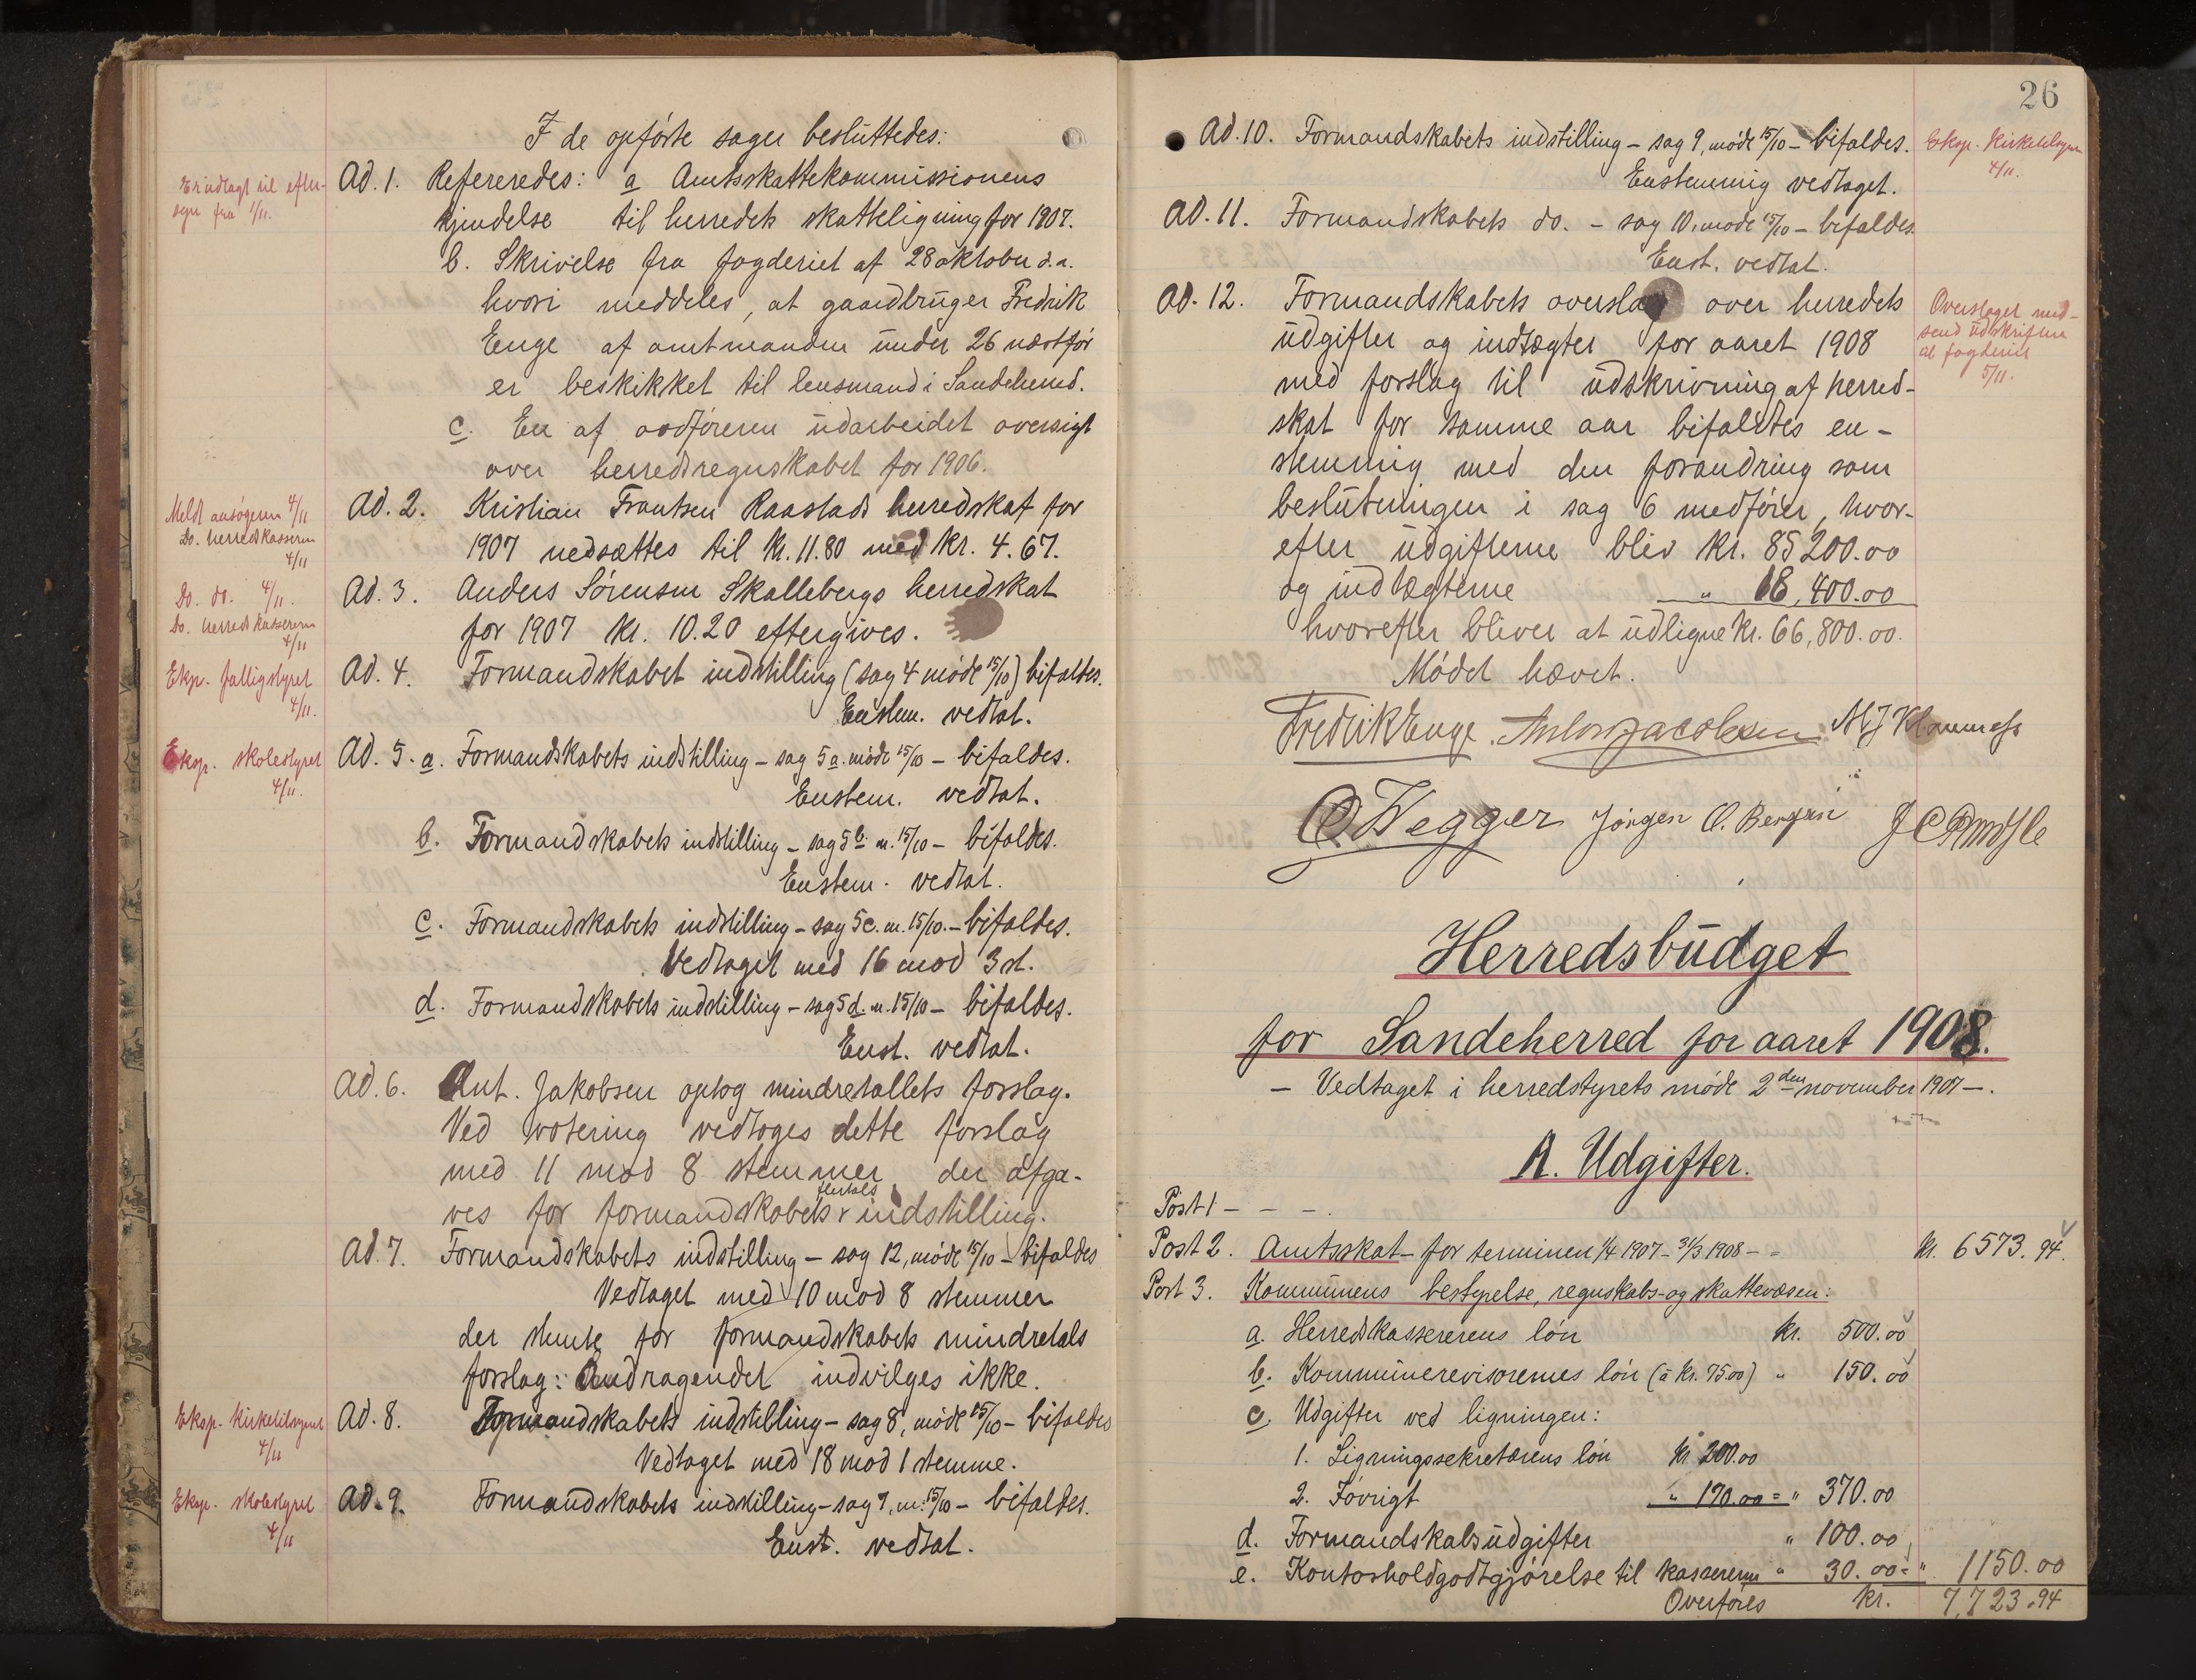 I de opførte sager besluttedes:
Er udlagt til efter-
syn fra 1/11.
Ad. 1. Refereredes: a Amtsskattekommissionens
kjendelse til herredets skatteligning for 1907.
b. Skrivelse fra fogderiet af 28 oktober d.a.
hvori meddeles, at gaardbruger Fredrik
Enge af amtmanden under 26 næstfør
er beskikket til lensmand i Sandeherred.
c. En af ordføreren udarbeidet oversigt
over herredsregnskabet for 1906.
Meldt ansøgeren 4/11
Do. herredskassereren
4/11
Ad. 2. Kristian Frantsen Raastads herredskat for
1907 nedsættes til kr. 11.80 med kr. 4.67.
Do. do. 4/11.
Do. herredskassereren
4/11
Ad. 3. Anders Sørensen Skallebergs herredskat
for 1907 kr. 10.20 eftergives.
Eksp. fattigstyret
4/11.
Ad. 4. Formandskabet indstilling (sag 4 møde 15/10) bifaldes.
Enstem. vedtat.
Eksp. skolestyret
4/11.
Ad. 5. a. Formandskabets indstilling – sag 5a. møde 15/10 – bifaldes.
Enstem. vedtat.
b. Formandskabets indstilling – sag 5b. m. 15/10 – bifaldes.
Enstem. vedtat.
c. Formandskabets indstilling – sag 5c. m. 15/10. – bifaldes.
Vedtaget med 16 mod 3 st.
d. Formandskabets indstilling – sag 5d. m. 15/10 – bifaldes.
Enst. vedtat.
Ad. 6. Ant. Jakobsen optog mindretallets forslag.
Ved votering vedtoges dette forslag
med 11 mod 8 stemmer, der afga-
flertals
ves for formandskabets indstilling.
Ad. 7. Formandskabets indstilling – sag 12, møde 15/10 – bifaldes
Vedtaget med 10 mod 8 stemmer
der stemte for formandskabets mindretals
forslag: Andragendet indvilges ikke.
Eksp. kirketilsynet
4/11
Ad. 8. Formandskabets indstilling – sag 8, møde 15/10 – bifaldes
Vedtaget med 18 mod 1 stemme.
Eksp. skolestyret
4/11
Ad. 9. Formandskabets indstilling – sag 7, m. 15/10 – bifaldes.
Enst. vedtat.
26
Ad. 10. Formandskabets indstilling – sag 9, møde 15/10 – bifaldes.
Enstemmig vedtaget.
Eksp. Kirketilsynet
4/11.
Ad. 11. Formandskabets do. – sag 10, møde 15/10 – bifaldes
Enst. vedtat.
Ad. 12. Formandskabets overslag over herredets
udgifter og indtægter for aaret 1908
med forslag til udskrivning af herred-
skat for samme aar bifaldtes en-
stemmig med den forandring som
beslutningen i sag 6 medfører, hvor-
efter udgifterne blev kr. 85200.00
og indtægterne " 18,400.00
hvorefter bliver at udligne kr. 66,800.00.
Overslaget med-
send udskrifter
til fogderiet
5/11.
Mødet hævet.
Fredrik Enge. Anton Jacobsen
O Wegger Jørgen O. Bergan
Herredsbudget
for Sandeherred for aaret 1908.
– Vedtaget i herredstyrets møde 2den november 1907 –.
A. Udgifter.
Post 1 – – –.
Post 2. Amtsskat – for terminen 1/4 1907 – 31/3 1908 – = kr. 6573.94.
Post 3. Kommunens bestyrelse, regnskabs- og skattevæsen:
a. Herredskassererens løn kr. 500.00
b. Kommunerevisorernes løn (à kr. 75.00) " 150.00
c. Udgifter ved ligningen:
1. Ligningssekretærens løn kr. 200.00
2. Iøvrigt " 170.00 = " 370.00
d. Formandskabsudgifter " 100.00
e. Kontorholdgodtgjørelse til kassereren " 30.00 = " 1150.00
Overføres kr. 7,723.94